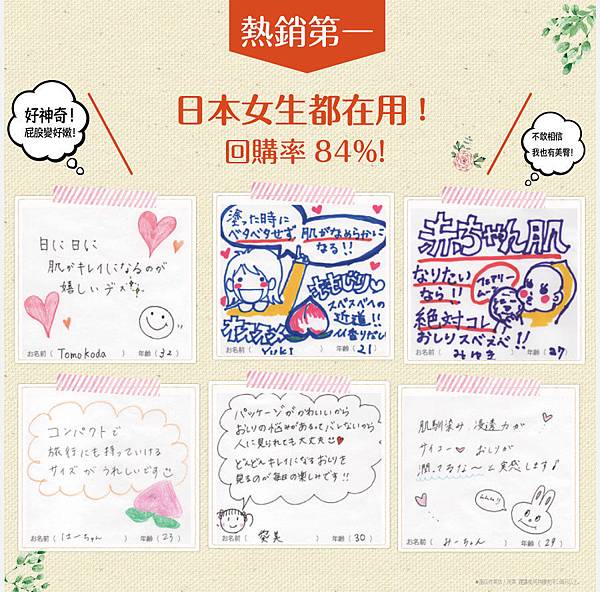 熱銷第一
好神奇!
屁股變好嫩!
日本女生都在用!
回購率 84%!
不敢相信
我也有美臀!
日に日に
肌がキレイになるのが
嬉しいデス
お名前( Tomokoda ) 年齢( 32 )
塗った時に
ベタベタせず
肌がなめらかに
なる!!
スベスベへの
近道!!
オススメ
お名前( YUKI ) 年齢( 21 )
赤ちゃん肌
なりたい
なら!!
絶対コレ
おしりスベスベ!!
お名前( みゆき ) 年齢( 27 )
コンパクトで
旅行にも持っていける
サイズが うれしいです
お名前( はーちゃん ) 年齢( 23 )
パッケージがかわいいから
おしりの悩みがあるってバレないから
人に見られても大丈夫
どんどんキレイになるおしりを
見るのが毎日の楽しみです!!
お名前( 愛美 ) 年齢( 30 )
肌馴染み、浸透力が
サイコー おしりが
潤ってるな〜と実感します
お名前( みーちゃん ) 年齢( 29 )